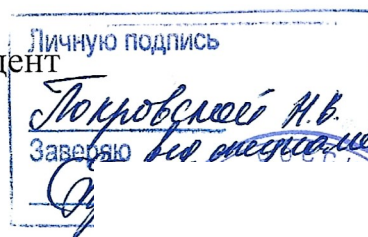 Личную подпись
цент
Покровской Н.В.
Заверяю вед специали